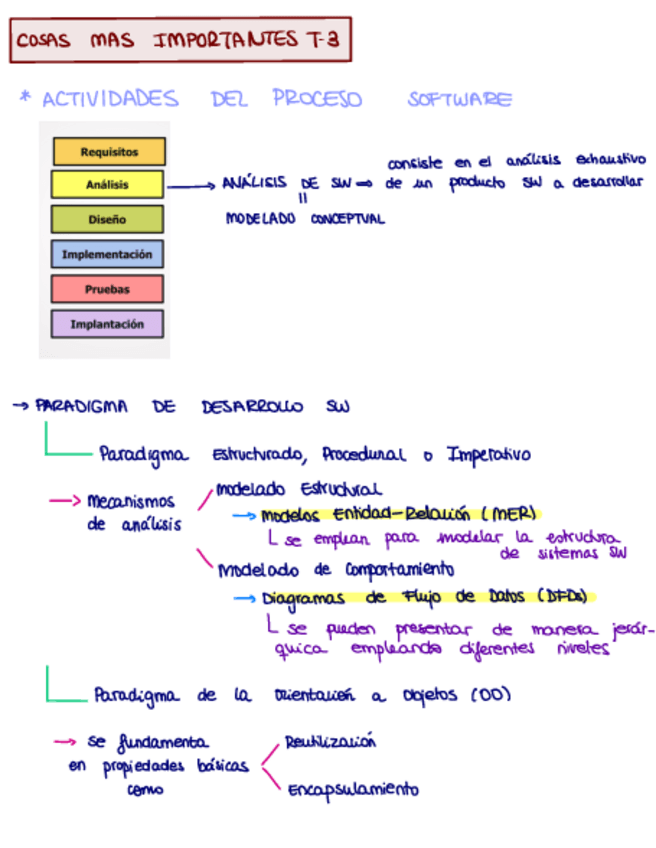 COSAS MAS IMPORTANTES T-3
* ACTIVIDADES DEL PROCESO SOFTWARE
Requisitos
Análisis
Diseño
Implementación
Pruebas
Implantación
→ ANÁLISIS DE SW ⇒ consiste en el análisis exhaustivo
de un producto SW a desarrollar
||
MODELADO CONCEPTUAL
→ PARADIGMA DE DESARROLLO SW
Paradigma Estructurado, Procedural o Imperativo
→ Mecanismos
de análisis
Modelado Estructural
→ Modelos Entidad-Relación (MER)
se emplean para modelar la estructura
de sistemas SW
Modelado de Comportamiento
→ Diagramas de Flujo de Datos (DFDs)
se pueden presentar de manera jerár-
quica empleando diferentes niveles
Paradigma de la Orientación a Objetos (OO)
→ se fundamenta
en propiedades básicas
como
Reutilización
Encapsulamiento